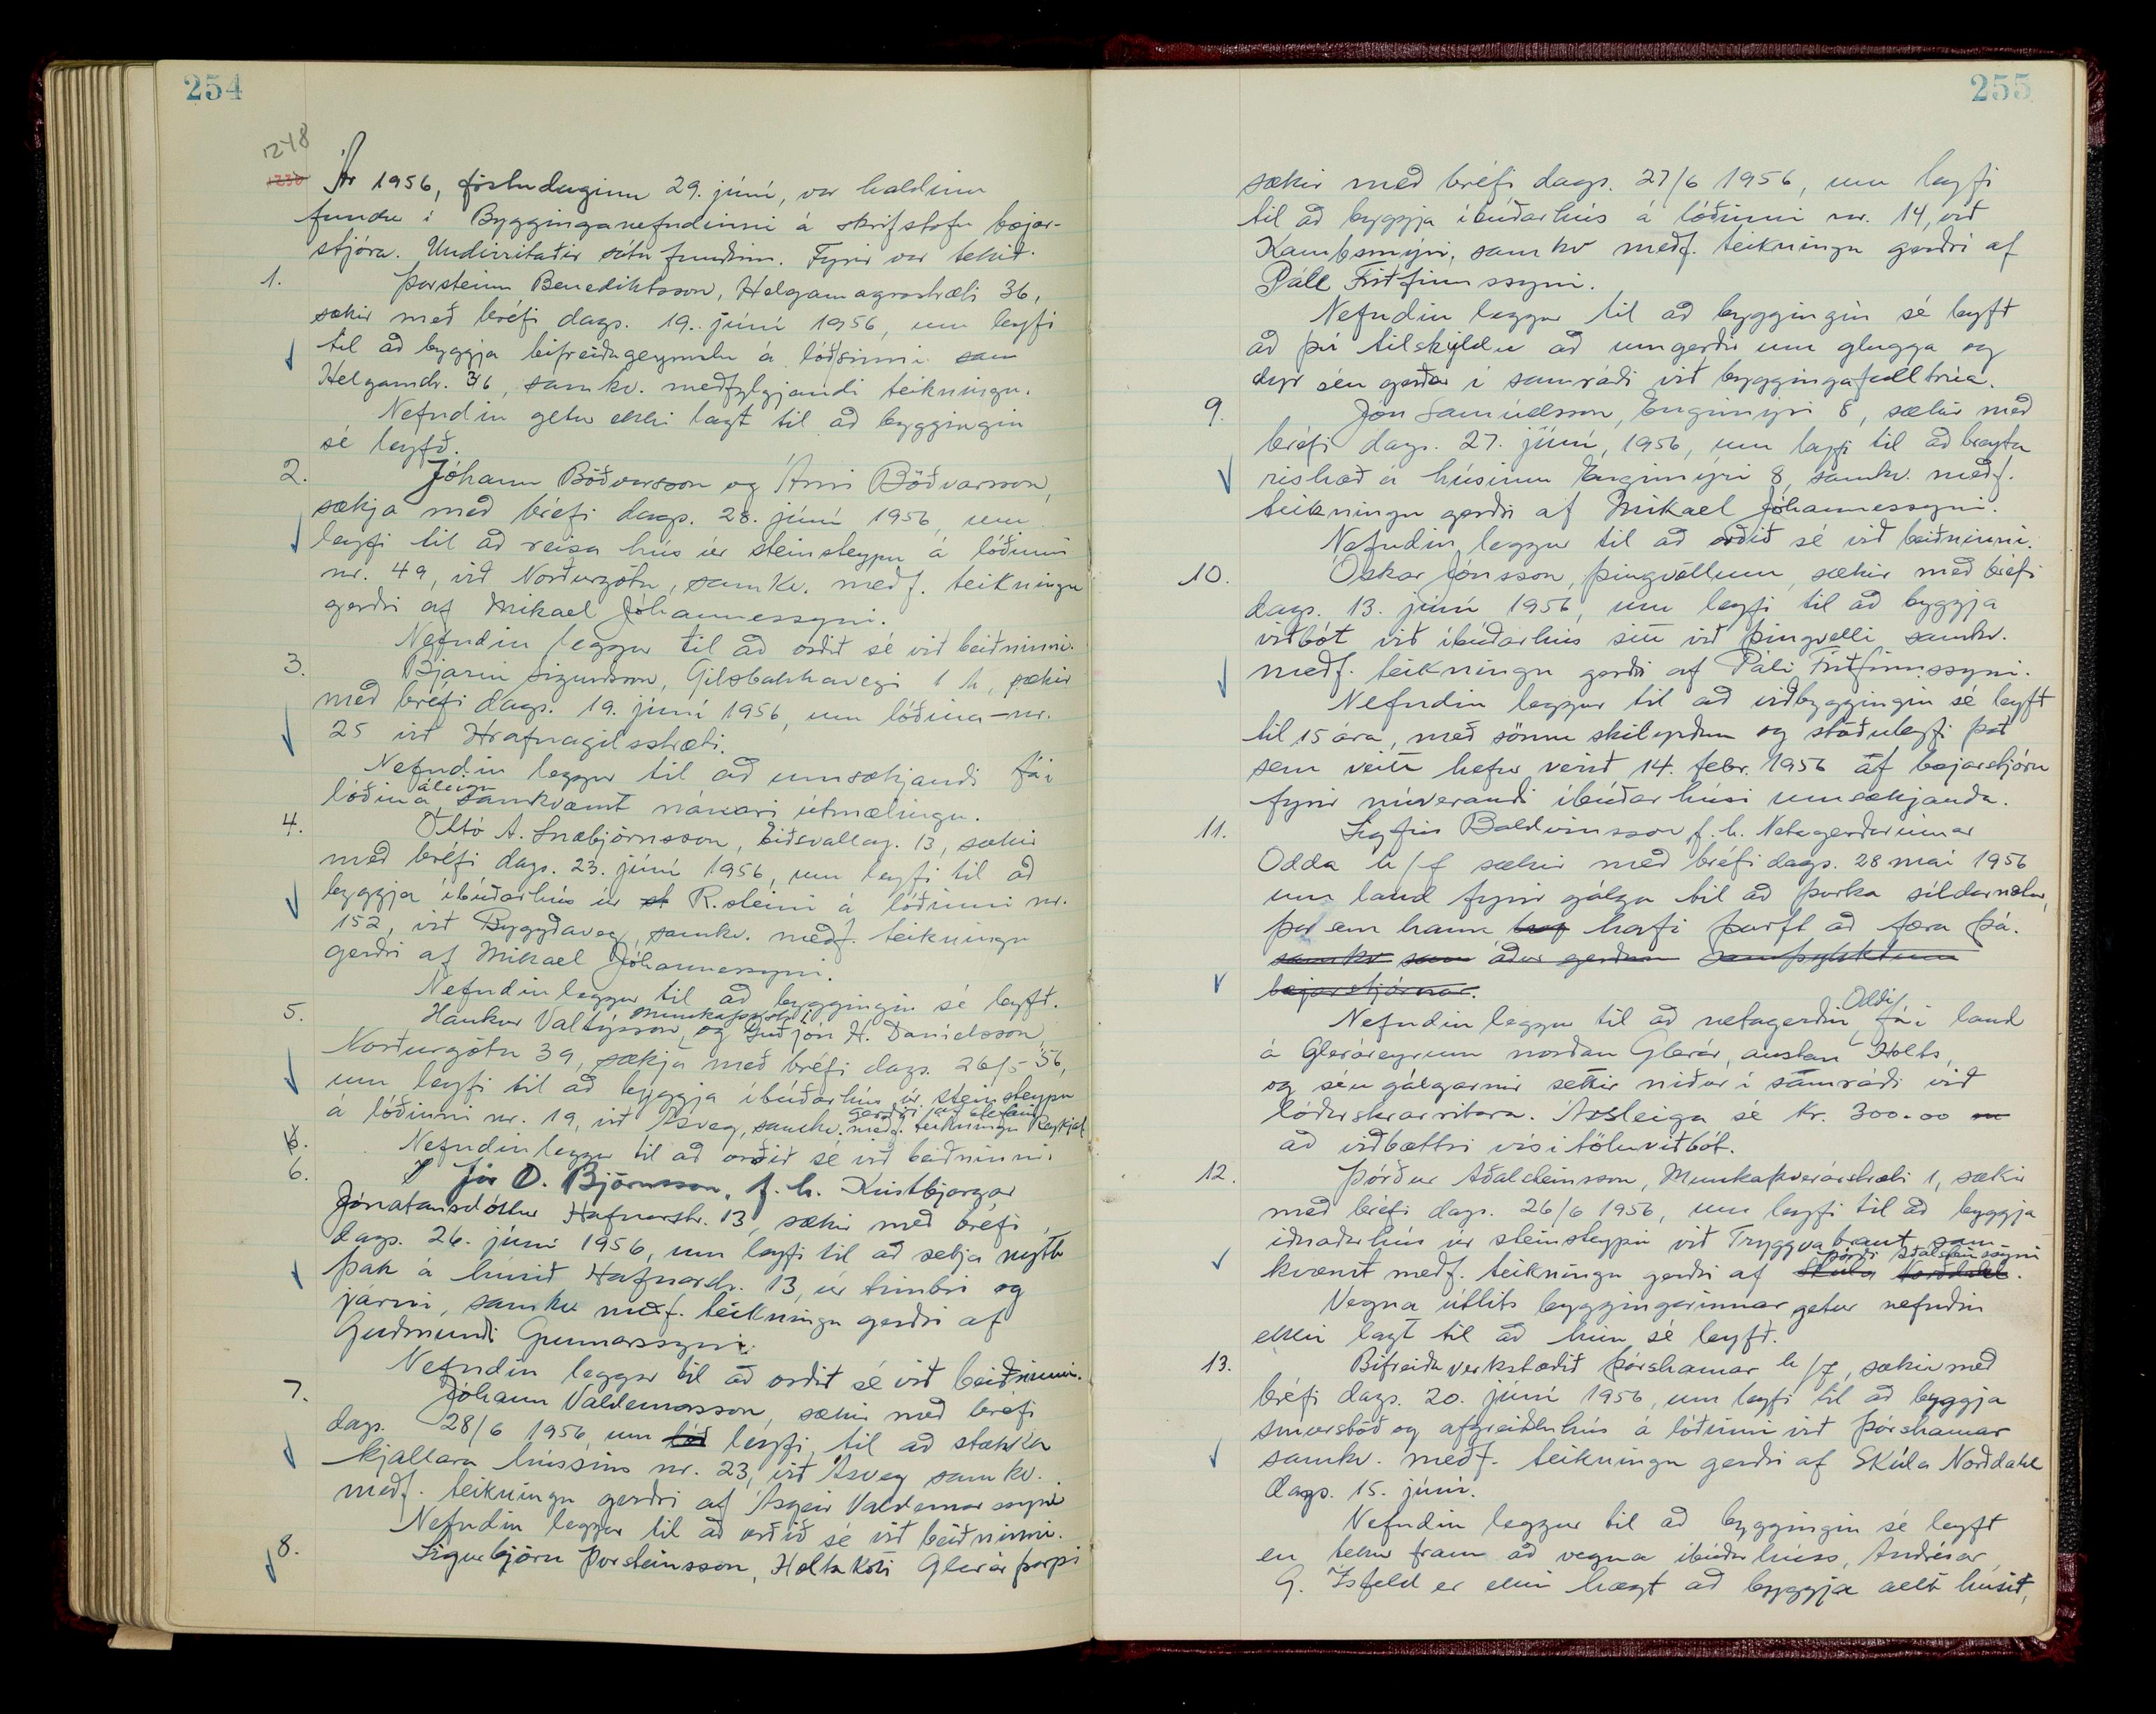 254
1248
1230
Ár 1956, föstudaginn 29. júní, var haldinn
fundur í Bygginganefndinni á skrifstofu bæjar-
stjóra. Undirritaðir sátu fundinn. Fyrir var tekið.
1. Þorsteinn Benediktsson, Helgamagrastræti 36,
sækir með bréfi dags. 19. júní 1956, um leyfi
til að byggja bifreiðageymslu á lóð sinni sam
Helgamstr. 36, samkv. meðfylgjandi teikningu.
Nefndin getur ekki lagt til að byggingin
sé leyfð.
2. Jóhann Böðvarsson og Árni Böðvarsson,
sækja með bréfi dags. 28. júní 1956, um
leyfi til að reisa hús úr steinsteypu á lóðinni
nr. 49, við Norðurgötu, samkv. meðf. teikningu
gerðri af Mikael Jóhannessyni.
Nefndin leggur til að orðið sé við beiðninni.
3. Bjarni Sigurðsson, Gilsbakkavegi 1 A, sækir
með bréfi dags. 19. júní 1956, um lóðina nr.
25 við Hrafnagilsstræti.
Nefndin leggur til að umsækjandi fái
lóðina, samkvæmt nánari útmælingu.
4. Ottó A. Snæbjörnsson, Eiðsvallag. 13, sækir
með bréfi dags. 23. júní 1956, um leyfi til að
byggja íbúðarhús úr st R.steini á lóðinni nr.
152, við Byggðaveg, samkv. meðf. teikningu
gerðri af Mikael Jóhannessyni.
Nefndin leggur til að byggingin sé leyfð.
5. Haukur Valtýsson, og Guðjón H. Daníelsson,
Norðurgötu 39, sækja með bréfi dags. 26/5-'56,
um leyfi til að byggja íbúðarhús úr steinsteypu
gerðri af Stefáni Reykjal
á lóðinni nr. 19, við Ásveg, samkv. meðf. teikningu
Nefndin leggur til að orðið sé við beiðninni
6. Jón O. Björnsson, f.h. Kristbjargar
Jónatansdóttur Hafnarstr. 13, sækir með bréfi,
dags. 26. júní 1956, um leyfi til að setja nýtt
þak á húsið Hafnarstr. 13, úr timbri og
járni, samkv meðf. teikningu gerðri af
Guðmundi Gunnarssyni.
Nefndin leggur til að orðið sé við beiðninni.
7. Jóhann Valdemarsson, sækir með bréfi
dags. 28/6 1956, um lóð leyfi, til að stækka
kjallara hússins nr. 23, við Ásveg samkv.
meðf. teikningu gerðri af Ásgeir Valdemarssyni
Nefndin leggur til að orðið sé við beiðninni.
8. Sigurbjörn Þorsteinsson, Holtakoti Glerárþorpi
255
sækir með bréfi dags. 27/6 1956, um leyfi
til að byggja íbúðarhús á lóðinni nr. 14, við
Kambsmýri, samkv meðf. teikningu gerðri af
Páll Friðfinnssyni.
Nefndin leggur til að byggingin sé leyfð
að því tilskyldu að umgerðir um glugga og
dyr séu gerðar í samráði við byggingafulltrúa.
9. Jón Samúelsson, Engimýri 8, sækir með
bréfi dags. 27. júní, 1956, um leyfi til að breyta
rishæð á húsinu Engimýri 8, samkv. meðf.
teikningu gerðri af Mikael Jóhannessyni.
Nefndin leggur til að orðið sé við beiðninni.
10. Óskar Jónsson, Þingvöllum, sækir með bréfi
dags. 13. júní 1956, um leyfi til að byggja
viðbót við íbúðarhús sitt við Þingvelli samkv.
meðf. teikningu gerðri af Páli Friðfinnssyni.
Nefndin leggur til að viðbyggingin sé leyfð
til 15 ára, með sömu skilyrðum og stöðuleyfi það
sem veitt hefur verið 14. febr. 1956 af bæjarstjórn
fyrir núverandi íbúðarhúsi umsækjanda.
11. Sigfús Baldvinsson f.h. Netagerðarinnar
Odda h/f sækir með bréfi dags. 28 maí 1956
um land fyrir gálga til að þurka síldarnætur,
þar em hann hafi þurft að færa þá.
samkv sam áður gerðum samþykktum
bæjarstjórnar.
Nefndin leggur til að netagerðin Oddi fái land
á Gleráreyrum norðan Glerár, austan Holts,
og séu gálgarnir settir niður í samráði við
lóðaskrárritara. Ársleiga sé kr. 300.00
að viðbættri vísitöluviðbót.
12. Þórður Aðalsteinsson, Munkaþverárstræti 1, sækir
með bréfi dags. 26/6 1956, um leyfi til að byggja
iðnaðarhús úr steinsteypu við Tryggvabraut sam-
Þórði Aðalsteinssyni
kvæmt meðf. teikningu gerðri af Skúla Norðdahl.
Vegna útlits byggingarinnar getur nefndin
ekki lagt til að hún sé leyfð.
13. Bifreiðaverkstæðið Þórshamar h/f, sækir með
bréfi dags. 20. júní 1956, um leyfi til að byggja
smurstöð og afgreiðsluhús á lóðinni við Þórshamar
samkv. meðf. teikningu gerðri af Skúla Norðdahl
dags. 15. júní.
Nefndin leggur til að byggingin sé leyfð
en tekur fram að vegna íbúðarhúss, Andrésar
G. Ísfeld er ekki hægt að byggja allt húsið,